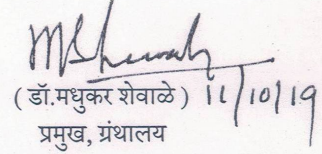 ( डॉ.मधुकर शेवाळे ) 11/10/19
प्रमुख, ग्रंथालय